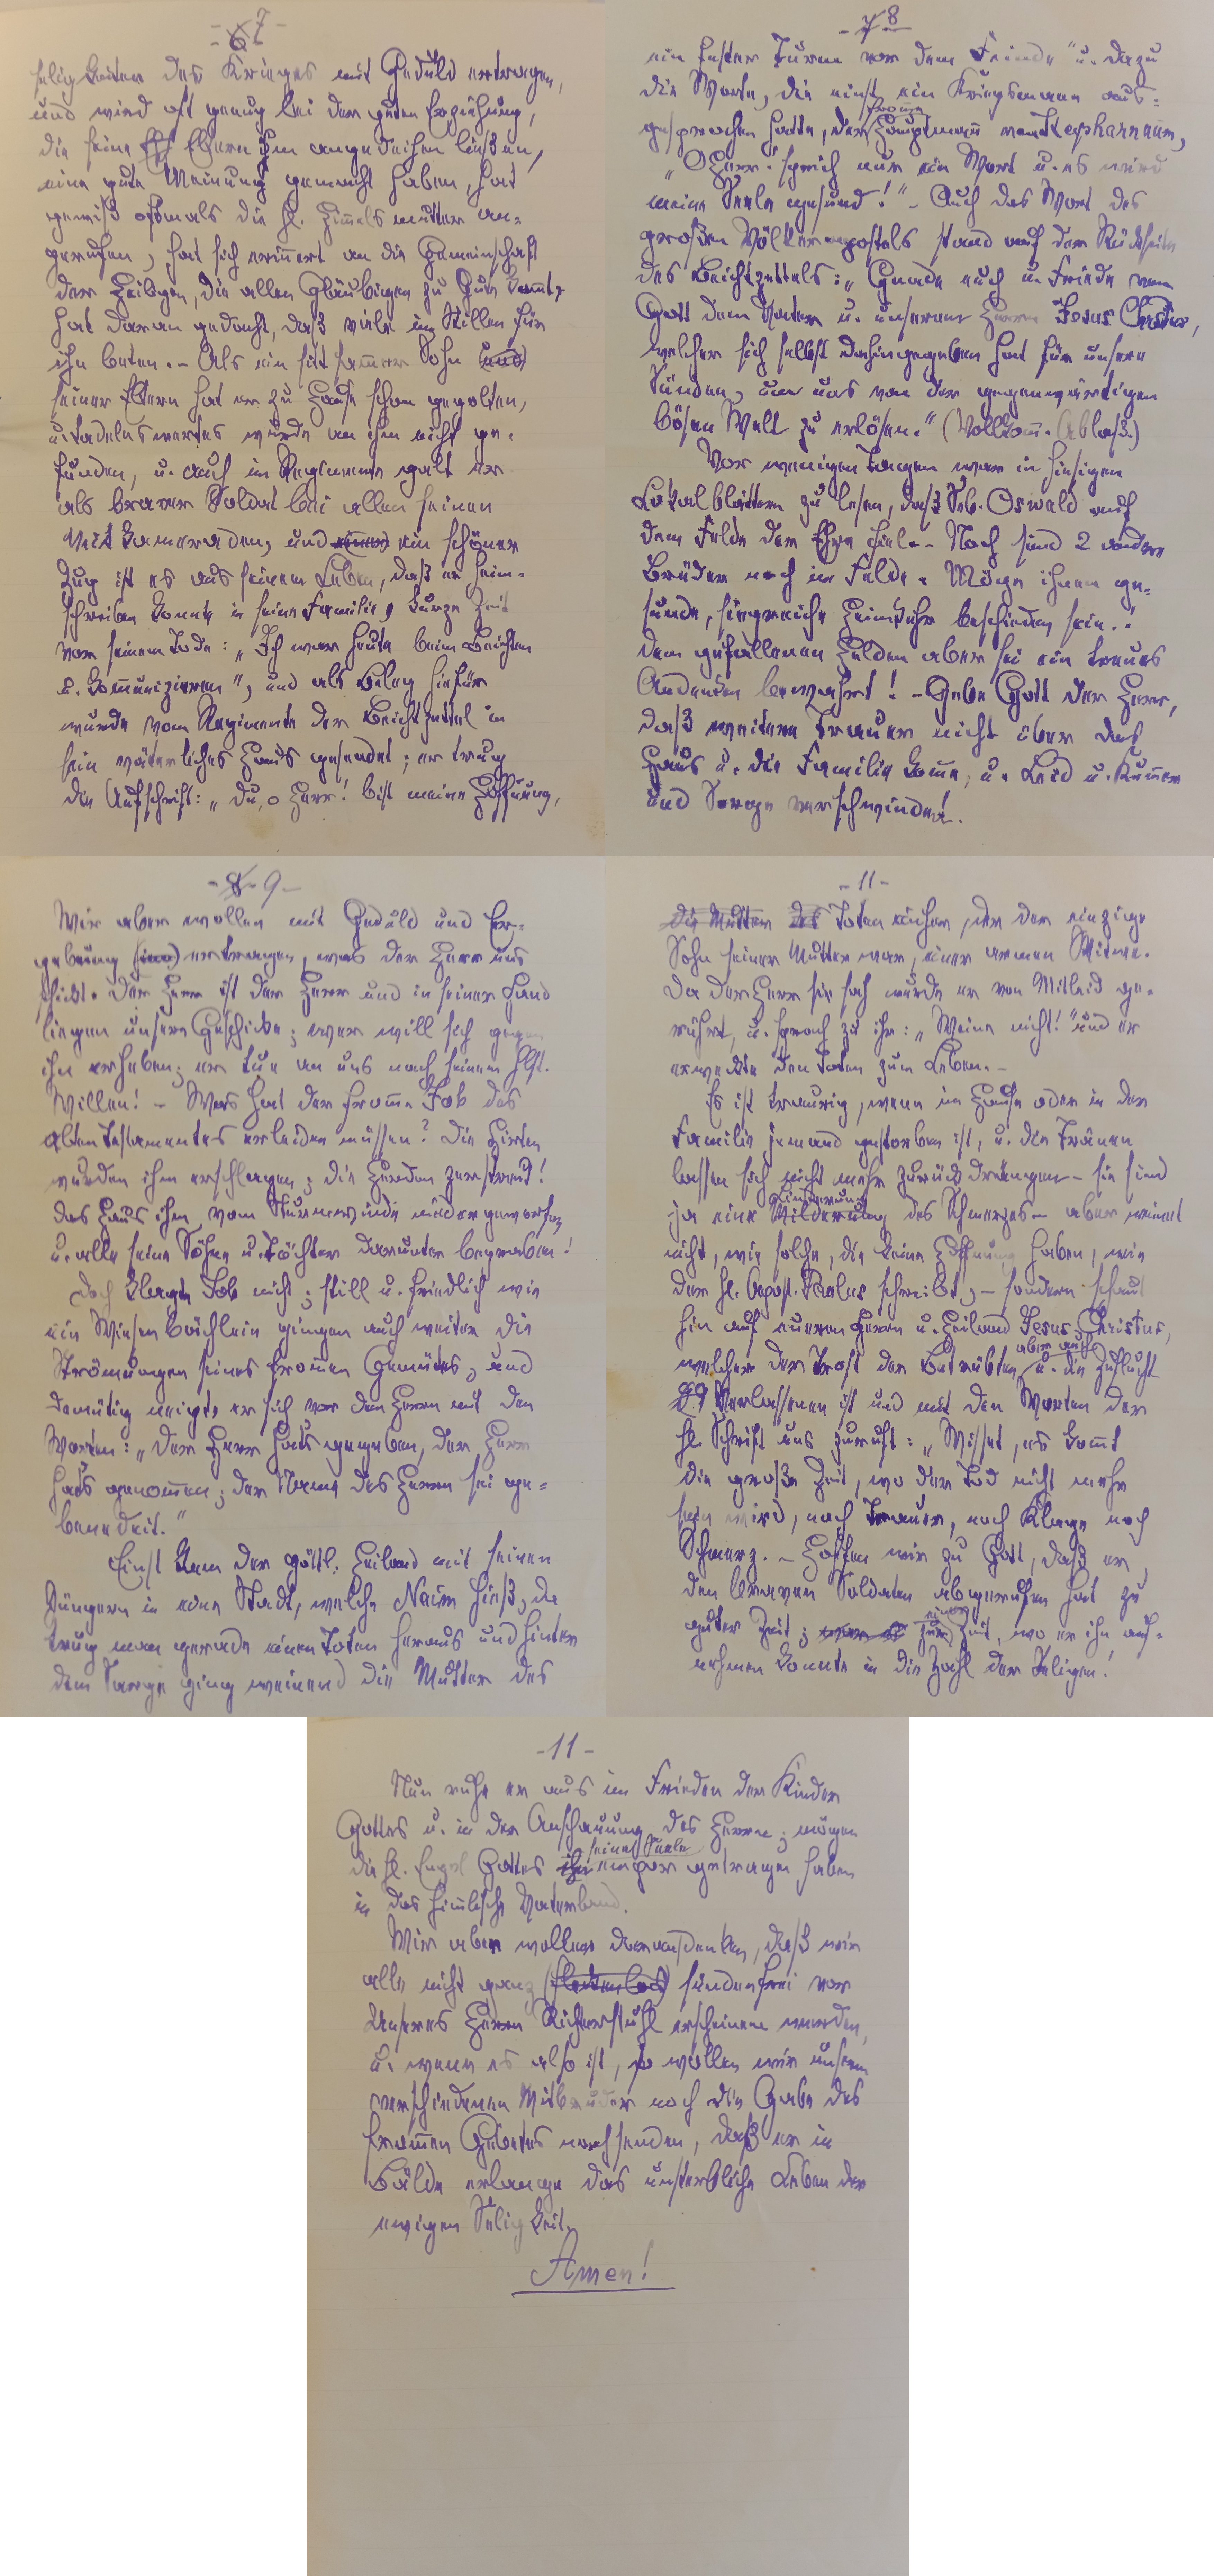 - 6 7 -
seligkeiten des Krieges mit Geduld ertragen,
und wird oft genug bei der guten Erziehung,
die seine Eltern ihm angedeihen ließen,
eine gute Meinung gemacht haben, hat
gewiß oftmals die hl. Himmelsmutter an-
gerufen, hat sich erinnert an die Gemeinschaft
der Heiligen, die allen Gläubigen zu Gute kommt,
hat daran gedacht, daß viele im Stillen für
ihn beten. – Als ein sittsamer Sohn (und)
seiner Eltern hat er zu Hause schon gegolten,
u. tadelnswertes wurde an ihm nicht ge-
funden, u. auch im Regimente galt er
als braver Soldat bei allen seinen
Mitkameraden, und einer ein schöner
Zug ist es aus seinem Leben, daß er heim-
schreiben konnte in seine Familie, kurze Zeit
vor seinem Tode: „Ich war heute beim Beichten
u. Kommunizieren", und als Beleg hiefür
wurde vom Regimente der Beichtzettel in
sein väterliches Haus gesendet; er trug
die Aufschrift: „Du, o Herr! bist meine Hoffnung,
- 7 8 -
ein fester Turm vor dem Feinde" u. dazu
die Worte, die einst ein Kriegsmann aus-
fromme
gesprochen hatte, der Hauptmann von Kapharnaum,
„O Herr! sprich nur ein Wort u. es wird
meine Seele gesund!" – Auch das Wort des
großen Völkerapostels stand auf der Rückseite
des Beichtzettels: „Gnade euch u. Friede von
Gott dem Vater u. unserem Herrn Jesus Christus,
welcher sich selbst dahingegeben hat für unsere
Sünden, um uns von der gegenwärtigen
bösen Welt zu erlösen." (Vollkomm. Ablaß.)
Vor wenigen Tagen war in hiesigen
Lokalblättern zu lesen, daß Seb. Oswald auf
dem Felde der Ehre fiel. – Noch sind 2 andere
Brüder noch im Felde. Möge ihnen ge-
sunde, siegreiche Heimkehr beschieden sein!
Dem gefallenen Helden aber sei ein treues
Andenken bewahrt! – Gebe Gott der Herr,
daß weitere Trauer nicht über das
Haus u. die Familie komme, u. Leid u. Kummer
und Sorge verschwinde!
- 8 9 -
Wir aber wollen mit Geduld und Er-
gebung ertragen, was der Herr uns
schickt. Der Herr ist der Herr und in seiner Hand
liegen unsere Geschicke; wer will sich gegen
ihn erheben; er tue an uns nach seinem hlst.
Willen! – Was hat der fromme Job des
alten Testamentes erleiden müssen? Die Hirten
wurden ihm erschlagen; die Herden zerstreut!
das Haus ihm vom Sturmwinde niedergeworfen
u. alle seine Söhne u. Töchter darunter begraben!
Doch klagte Job nicht; still u. friedlich wie
ein Wiesenbächlein gingen auch weiter die
Strömungen seines frommen Gemütes, und
demütig neigte er sich vor dem Herrn mit den
Worten: „Der Herr hats gegeben, der Herr
hats genommen; der Name des Herrn sei ge-
benedeit."
Einst kam der göttl. Heiland mit seinen
Jüngern in eine Stadt, welche Naim hieß, da
trug man gerade einen Toten heraus und hinter
dem Sarge ging weinend die Mutter des
- 11 -
die Mutter des Toten einher, der der einzige
Sohn seiner Mutter war, einer armen Witwe.
Da der Herr sie sah wurde er von Mitleid ge-
rührt, u. sprach zu ihr: „Weine nicht!" und er
erweckte den Toten zum Leben. –
Es ist traurig, wenn im Hause oder in der
Familie jemand gestorben ist, u. die Tränen
lassen sich nicht mehr zurückdrängen – sie sind
Linderung
ja eine Milderung des Schmerzes – aber weinet
nicht, wie solche, die keine Hoffnung haben, wie
der hl. Apost. Paulus schreibt, – sondern schaut
hin auf eueren Herrn u. Heiland Jesus Christus,
aber auch
welcher der Trost der Betrübten, u. die Zuflucht
d. Verlassenen ist und mit den Worten der
hl. Schrift uns zuruft: „Wisset, es kommt
die große Zeit, wo der Tod nicht mehr
sein wird, noch Trauer, noch Klage noch
Schmerz. – Hoffen wir zu Gott, daß er,
den braven Soldaten abgerufen hat zu
einer
guter Zeit; zur Zeit, wo er ihn auf-
nehmen konnte in die Zahl der Seligen!
- 11 -
Nun ruhe er aus im Frieden der Kinder
Gottes u. in der Anschauung des Herrn; mögen
seine Seele
die hl. Engel Gottes ihn empor getragen haben
in das himmlische Vaterland.
Wir aber wollen daran denken, daß wir
alle nicht ganz (fleckenlos) sündenfrei vor
unseres Herrn Richterstuhl erscheinen werden,
u. wenn es also ist, so wollen wir unserm
verschiedenen Mitbruder noch die Gabe des
frommen Gebetes nachsenden, daß er in
Bälde erlange das unsterbliche Leben der
ewigen Seligkeit.
Amen!